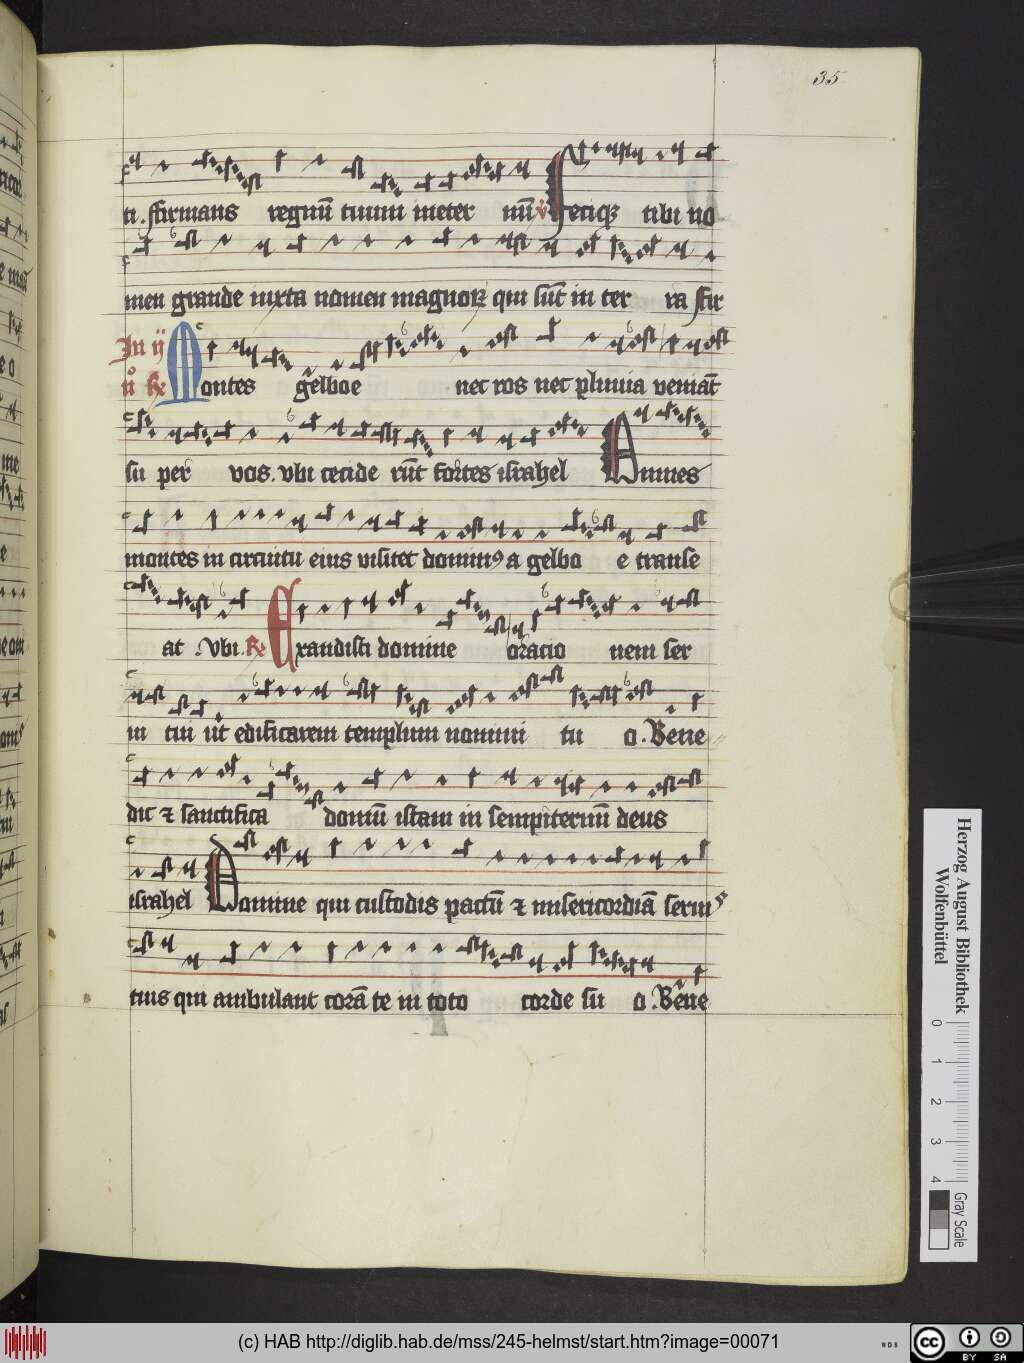 35
ti. ffirmans regnū tuum ineter nū v̊ Feciqꝫ tibi no
men grande iuxta nomen magnoꝝ qui sūt in ter ra ffir
In ij
n̊ R̶ Montes gelboe nec ros nec pluuia veniāt
su per vos. vbi cecide rūt fortes israhel Omnes
montes in circuitu eius visitet dominꝰ a gelbo e transe
at .Vbi. R̶ Exaudisti domine oratio nem ser
ui tui ut edificarem templum nomini tu o. Bene
dic ⁊ sanctifica domū istam in sempiternū deus
israhel Domine qui custodis pactū ⁊ misericordiā seruis
tuis qui ambulant corā te in toto corde su o. Bene
Herzog August Bibliothek
Wolfenbüttel
0 1 2 3 4
Gray Scale
(c) HAB http://diglib.hab.de/mss/245-helmst/start.htm?image=00071
WDB
cc BY SA